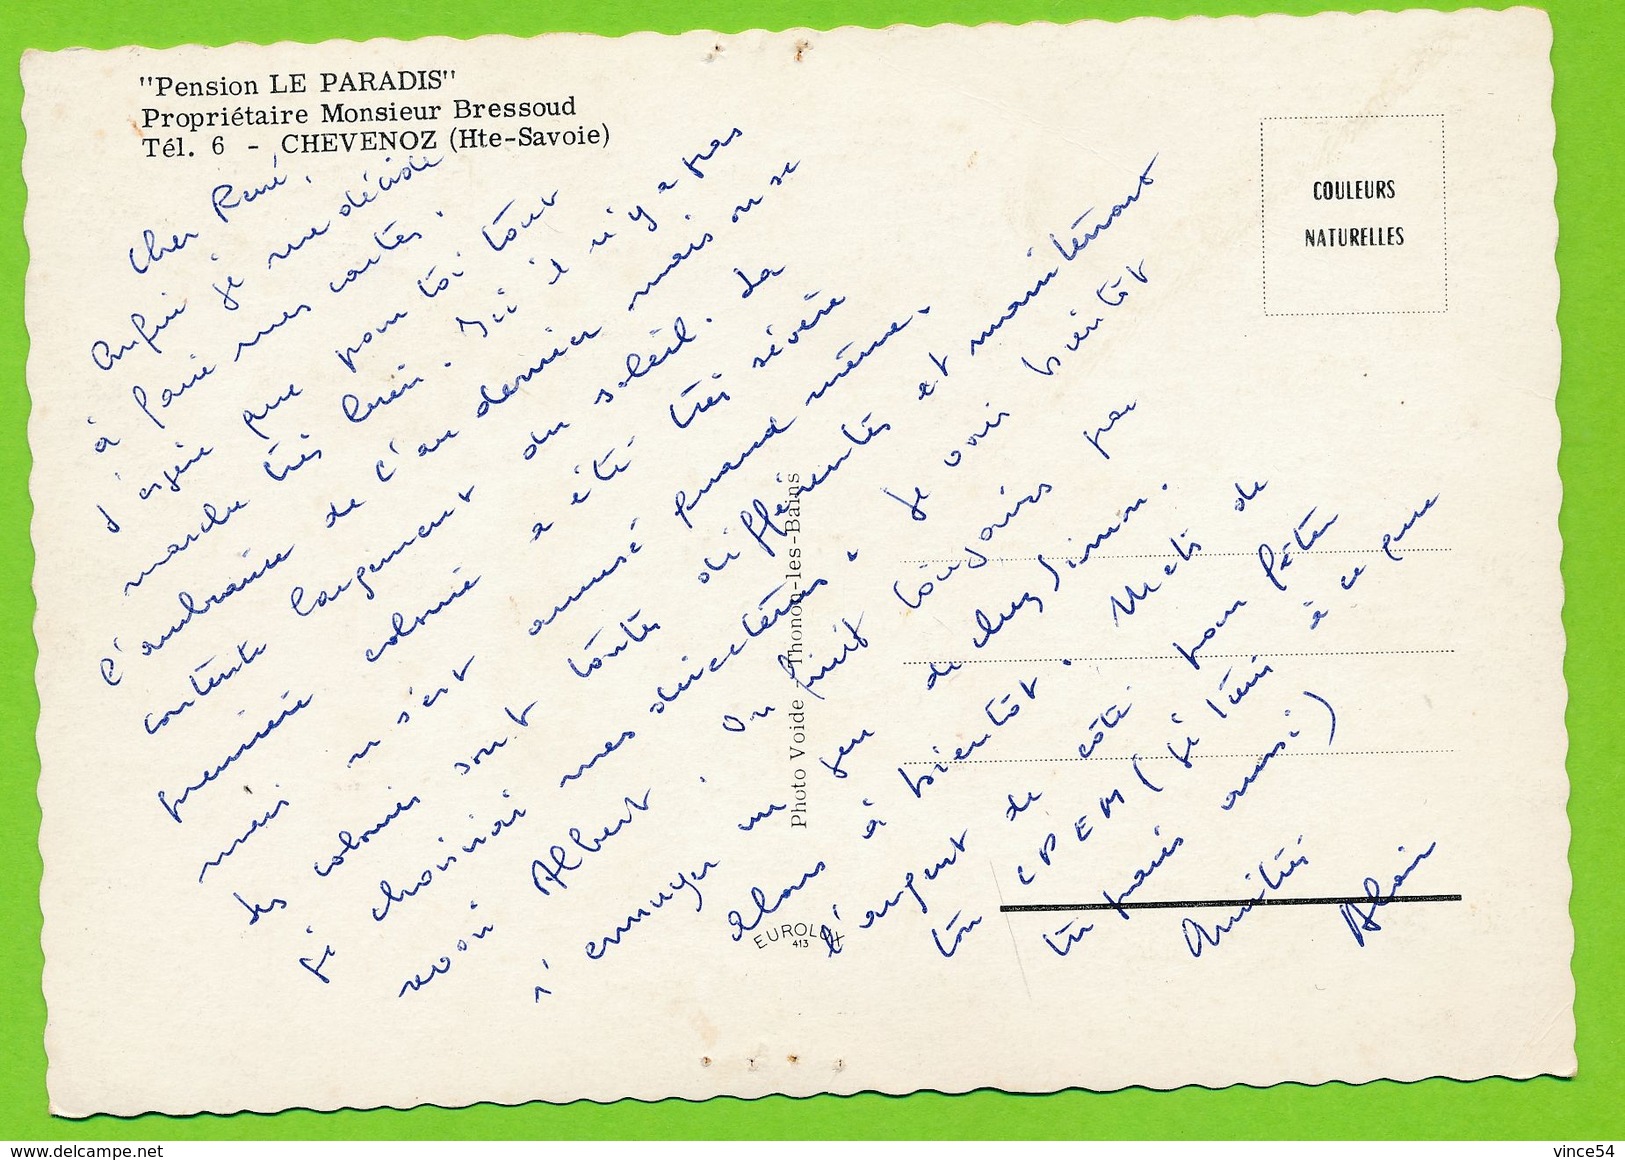 "Pension LE PARADIS"
Propriétaire Monsieur Bressoud
Tél. 6 - CHEVENOZ (Hte-Savoie)
COULEURS
NATURELLES
Cher René,
Enfin je me décide
à faire mes cartes.
J'espère que pour toi tout
marche très bien. Ici il n'y a pas
l'ambiance de l'an dernier mais on se
contente largement du soleil. La
première colonie a été très sévère
mais on s'est amusé quand même.
Les colonies sont toutes différentes et maintenant
je choisirai mes directeurs. Je vais bientôt
revoir Albert. On finit toujours par
s'ennuyer un peu de chez Simon.
Alors à bientôt. Mets de
l'argent de côté pour fêter
ton CPEM (je tiens à ce que
tu paies aussi)
Amitiés
Alain
Photo Voide - Thonon-les-Bains
EUROLUX
413
www.delcampe.net
vince54